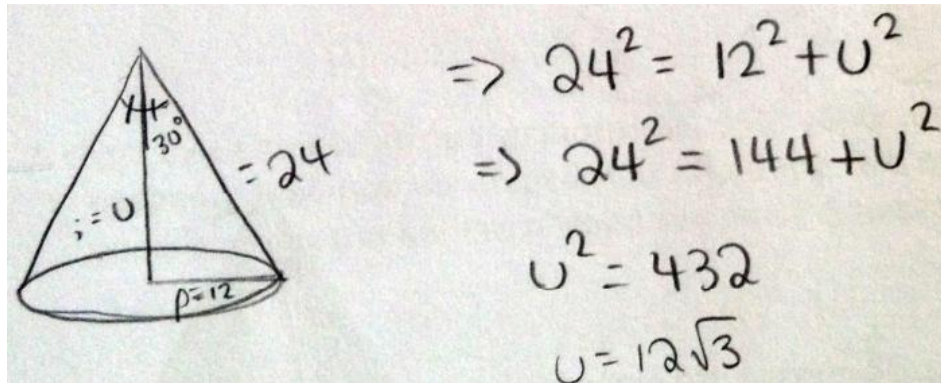 30°
= 24
; = υ
ρ = 12
=> 24² = 12² + υ²
=> 24² = 144 + υ²
υ² = 432
υ = 12√3